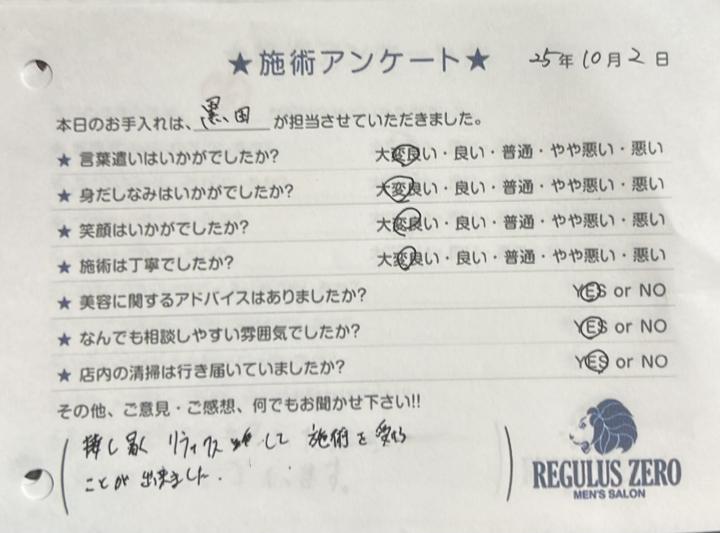 ★施術アンケート★
25年10月2日
本日のお手入れは、黒田が担当させていただきました。
★ 言葉遣いはいかがでしたか? 大変良い・良い・普通・やや悪い・悪い
★ 身だしなみはいかがでしたか? 大変良い・良い・普通・やや悪い・悪い
★ 笑顔はいかがでしたか? 大変良い・良い・普通・やや悪い・悪い
★ 施術は丁寧でしたか? 大変良い・良い・普通・やや悪い・悪い
★ 美容に関するアドバイスはありましたか? YES or NO
★ なんでも相談しやすい雰囲気でしたか? YES or NO
★ 店内の清掃は行き届いていましたか? YES or NO
その他、ご意見・ご感想、何でもお聞かせ下さい!!
して 施術を受ける
ことが出来ました.
REGULUS ZERO
MEN'S SALON